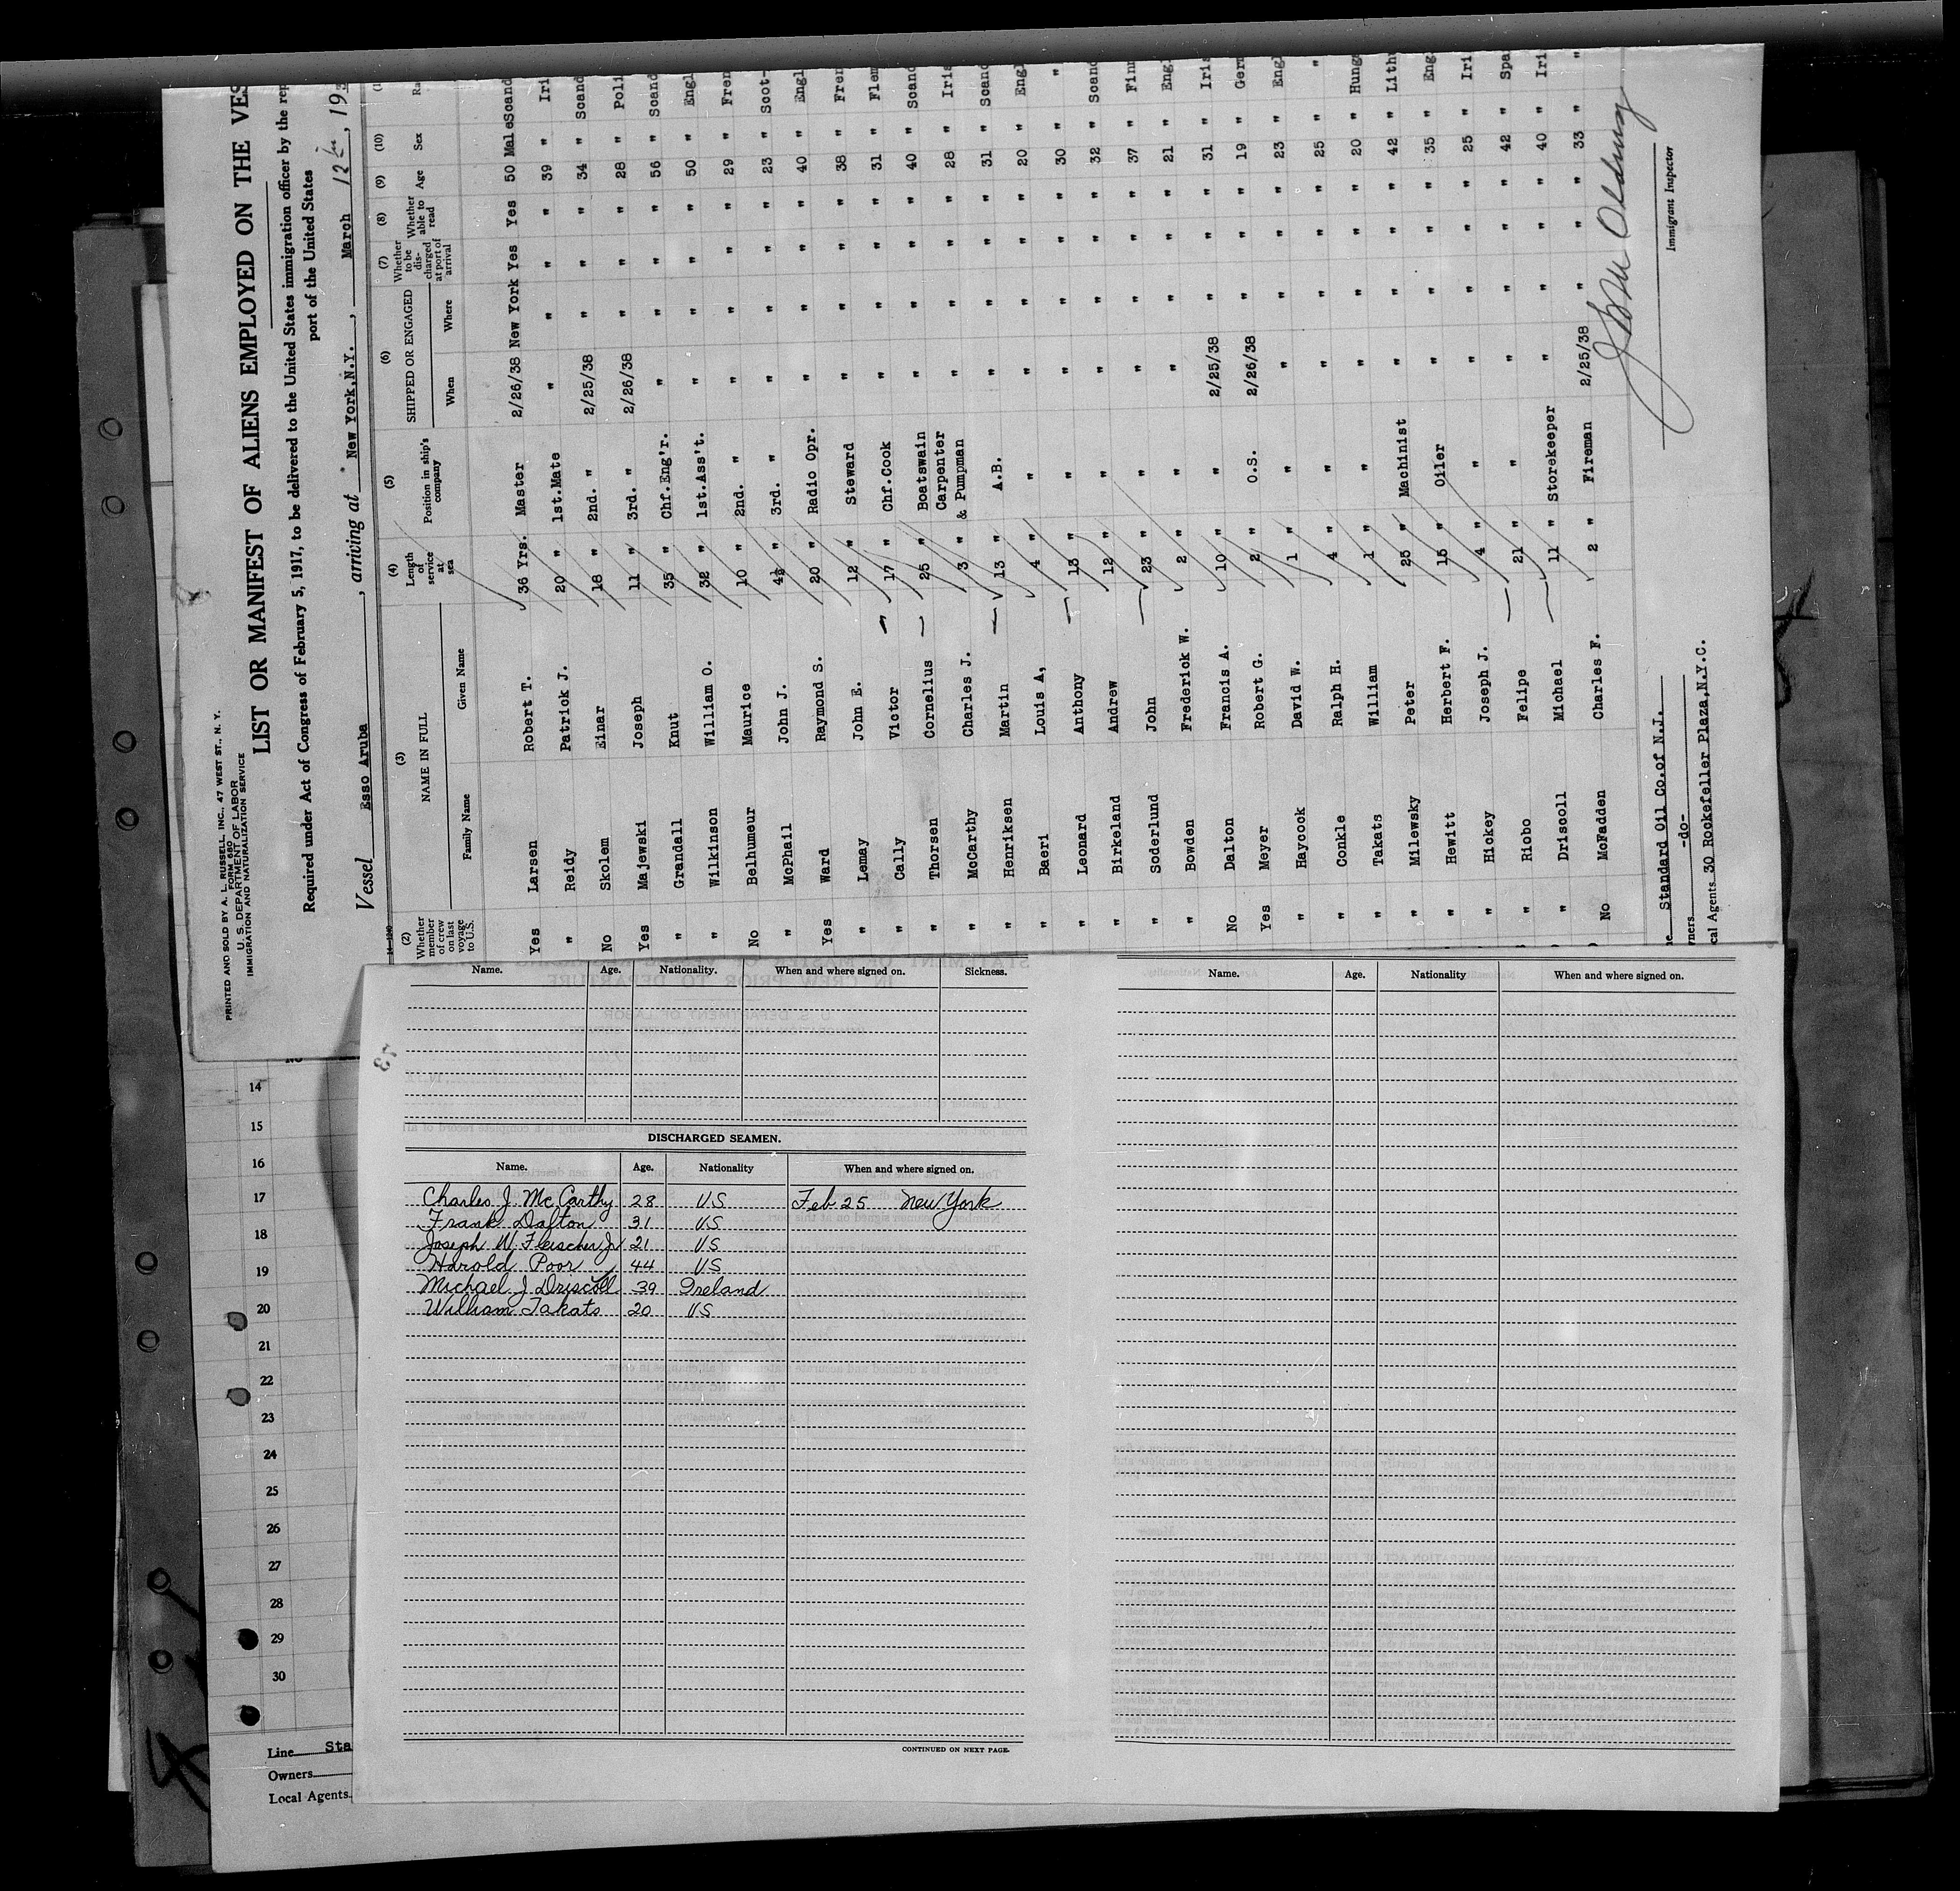 PRINTED AND SOLD BY A. L. RUSSELL, INC., 47 WEST ST., N. Y.
FORM 680
U. S. DEPARTMENT OF LABOR
IMMIGRATION AND NATURALIZATION SERVICE
LIST OR MANIFEST OF ALIENS EMPLOYED ON THE VES
Required under Act of Congress of February 5, 1917, to be delivered to the United States immigration officer by the rep
port of the United States
Vessel Esso Aruba, arriving at New York,N.Y., March 12th, 193
(2) (3) (4) (5) (6) (7) (8) (9) (10)
Whether member of crew on last voyage to U.S. NAME IN FULL Family Name Given Name Length of service at sea Position in ship's company SHIPPED OR ENGAGED When Where Whether to be discharged at port of arrival Whether able to read Age Sex Ra
Yes Larsen Robert T. 36 Yrs. Master 2/26/38 New York Yes Yes 50 Male Scand
" Reidy Patrick J. 20 " 1st.Mate " " " " 39 " Iri
No Skolem Einar 18 " 2nd. " 2/25/38 " " " 34 " Scand
Yes Majewski Joseph 11 " 3rd. " 2/26/38 " " " 28 " Poli
" Grandall Knut 35 " Chf.Eng'r. " " " " 56 " Scand
" Wilkinson William O. 32 " 1st.Ass't. " " " " 50 " Engl
No Belhumeur Maurice 10 " 2nd. " " " " " 29 " Fren
" McPhail John J. 4½ " 3rd. " " " " " 23 " Scot-
Yes Ward Raymond S. 20 " Radio Opr. " " " " 40 " Engl
" Lemay John E. 12 " Steward " " " " 38 " Fren
" Cally Victor 17 " Chf.Cook " " " " 31 " Flem
" Thorsen Cornelius 25 " Boatswain " " " " 40 " Scand
" McCarthy Charles J. 3 " Carpenter & Pumpman " " " " 28 " Iris
" Henriksen Martin 13 " A.B. " " " " 31 " Scand
" Baeri Louis A, 4 " " " " " " 20 " Engl
" Leonard Anthony 13 " " " " " " 30 " "
" Birkeland Andrew 12 " " " " " " 32 " Scand
" Soderlund John 23 " " " " " " 37 " Finn
" Bowden Frederick W. 2 " " " " " " 21 " Engl
No Dalton Francis A. 10 " " 2/25/38 " " " 31 " Iris
Yes Meyer Robert G. 2 " O.S. 2/26/38 " " " 19 " Germ
" Haycock David W. 1 " " " " " " 23 " Engl
" Conkle Ralph H. 4 " " " " " " 25 " "
" Takats William 1 " " " " " " 20 " Hung
" Milewsky Peter 25 " Machinist " " " " 42 " Lith
" Hewitt Herbert F. 15 " Oiler " " " " 35 " Eng
" Hickey Joseph J. 4 " " " " " " 25 " Iri
" Riobo Felipe 21 " " " " " " 42 " Spa
" Driscoll Michael 11 " Storekeeper " " " " 40 " Iri
No McFadden Charles F. 2 " Fireman 2/25/38 " " " 33 " "
Standard Oil Co.of N.J.
ners -do-
cal Agents 30 Rockefeller Plaza,N.Y.C.
Immigrant Inspector
Name. Age. Nationality. When and where signed on. Sickness.
DISCHARGED SEAMEN.
Name. Age. Nationality When and where signed on.
Charles J. McCarthy 28 US Feb 25 New York
Frank Dalton 31 US
Joseph W. Fleischer Jr 21 US
Harold Poor 44 US
Michael J Driscoll 39 Ireland
William Takats 20 US
CONTINUED ON NEXT PAGE.
Name. Age. Nationality When and where signed on.
14
15
16
17
18
19
20
21
22
23
24
25
26
27
28
29
30
Line Sta
Owners
Local Agents